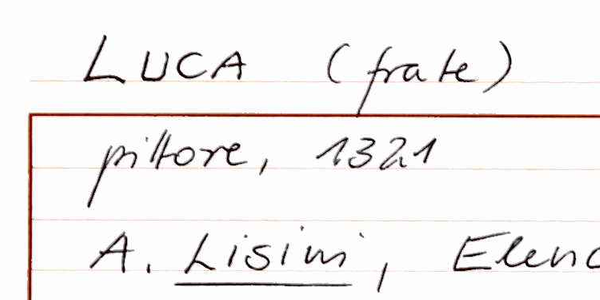 LUCA (frate)
pittore, 1321
A. Lisini, Elenc